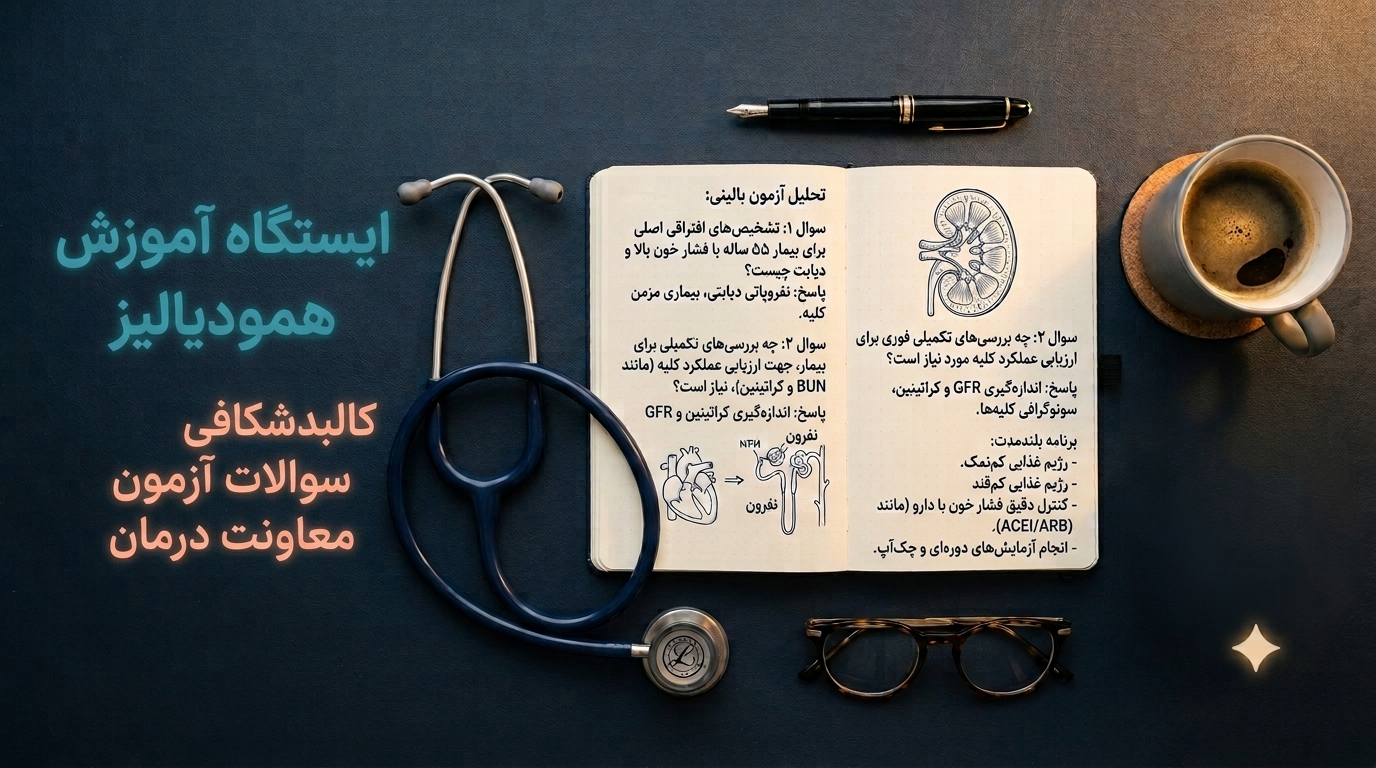 ایستگاه آموزش
همودیالیز
کالبدشکافی
سوالات آزمون
معاونت درمان
تحلیل آزمون بالینی:
سوال ۱: تشخیص‌های افتراقی اصلی
برای بیمار ۵۵ ساله با فشار خون بالا و
دیابت چیست؟
پاسخ: نفروپاتی دیابتی، بیماری مزمن
کلیه.
سوال ۲: چه بررسی‌های تکمیلی برای
بیمار، جهت ارزیابی عملکرد کلیه (مانند
BUN و کراتینین)، نیاز است؟
پاسخ: اندازه‌گیری کراتینین و GFR
نفرون
نفرون
سوال ۲: چه بررسی‌های تکمیلی فوری برای
ارزیابی عملکرد کلیه مورد نیاز است؟
پاسخ: اندازه‌گیری GFR و کراتینین،
سونوگرافی کلیه‌ها.
برنامه بلندمدت:
- رژیم غذایی کم‌نمک.
- رژیم غذایی کم‌قند
- کنترل دقیق فشار خون با دارو (مانند
ACEI/ARB).
- انجام آزمایش‌های دوره‌ای و چک‌آپ.